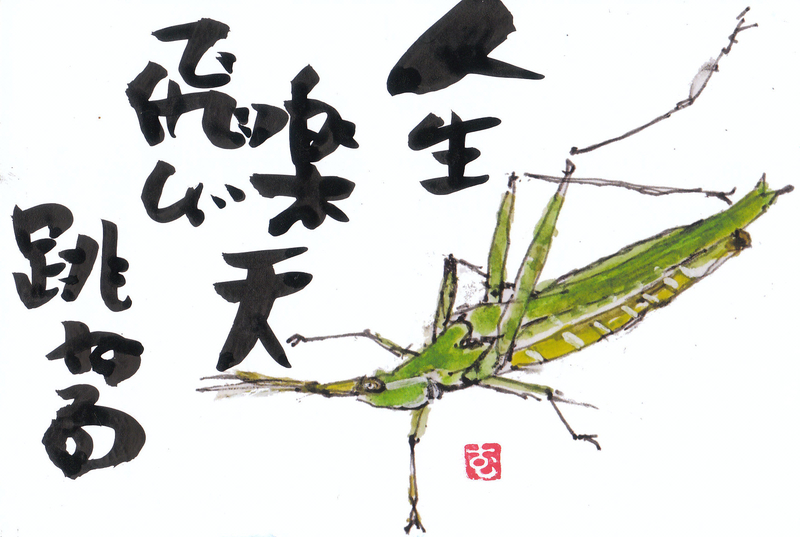 人生
楽天
で飛び
跳ねる
む